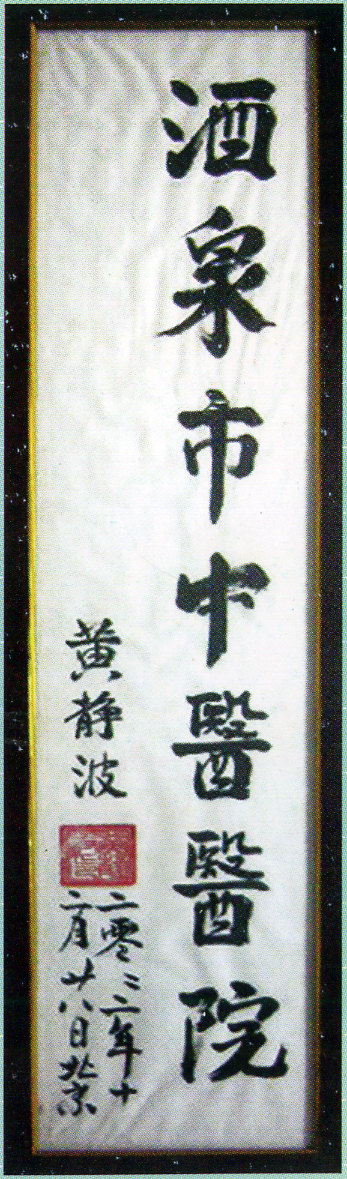 酒泉市中醫醫院
黄静波
二零〻二年十
二月廿八日北京